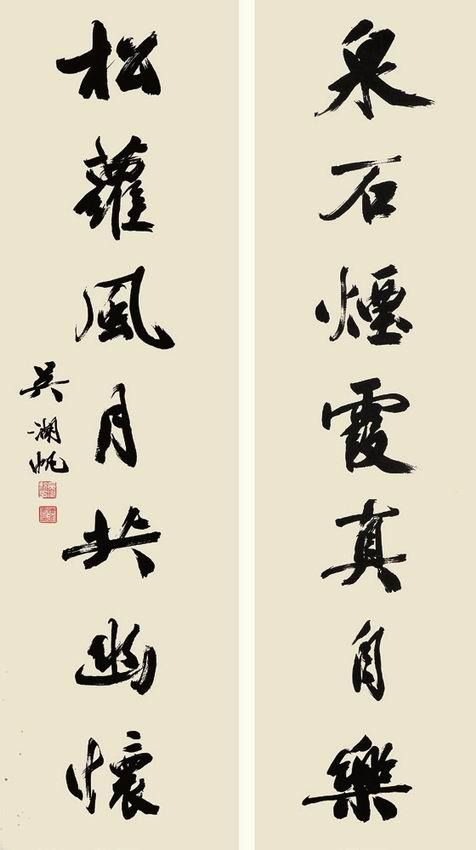 泉石煙霞真自樂
松蘿風月共幽懷
吴瀾帆